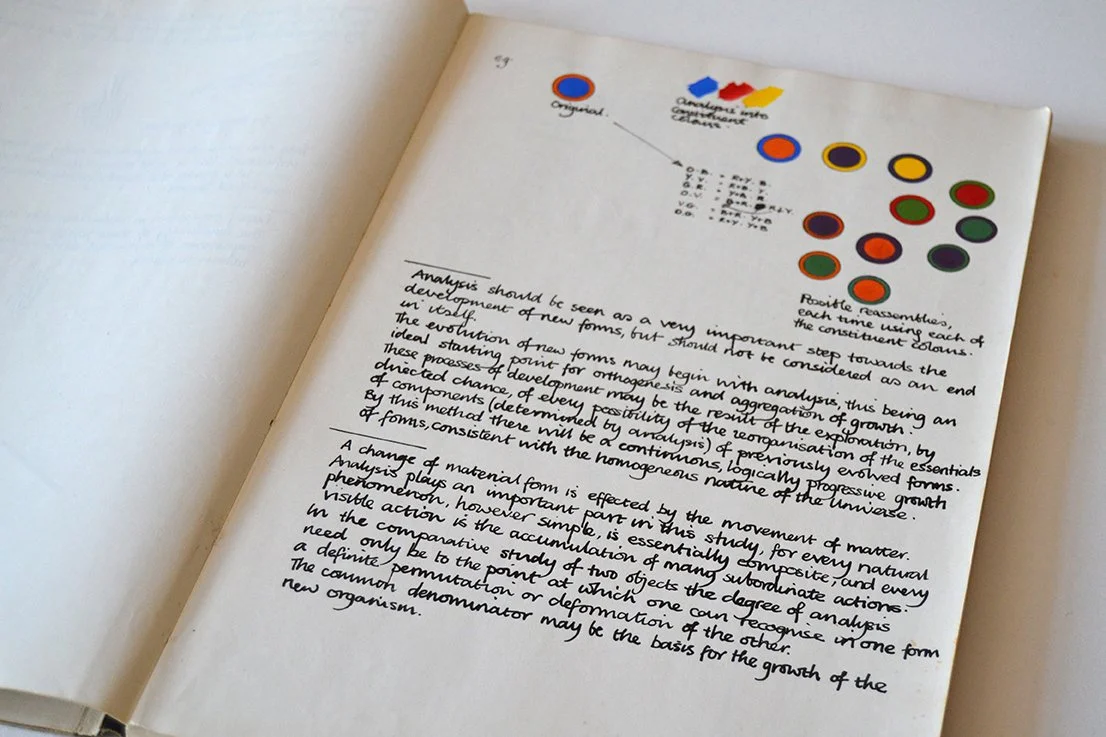 e.g.
Original.
Analysis into
Constituent
Colours.
O.B. = R+Y. B.
Y.V. = R+B. Y.
G.R. = Y+B. R
O.V. = B+R. R+Y.
V.G. = B+R. Y+B
O.G. = R+Y. Y+B
Possible reassemblies,
each time using each of
the constituent colours.
Analysis should be seen as a very important step towards the
development of new forms, but should not be considered as an end
in itself.
The evolution of new forms may begin with analysis, this being an
ideal starting point for orthogenesis and aggregation of growth.
These processes of development may be the result of the exploration, by
directed chance, of every possibility of the reorganisation of the essentials
of components (determined by analysis) of previously evolved forms.
By this method there will be a continuous, logically progressive growth
of forms, consistent with the homogeneous nature of the Universe.
A change of material form is effected by the movement of matter.
Analysis plays an important part in this study, for every natural
phenomenon, however simple, is essentially composite, and every
visible action is the accumulation of many subordinate actions.
In the comparative study of two objects the degree of analysis
need only be to the point at which one can recognise in one form
a definite permutation or deformation of the other.
The common denominator may be the basis for the growth of the
new organism.